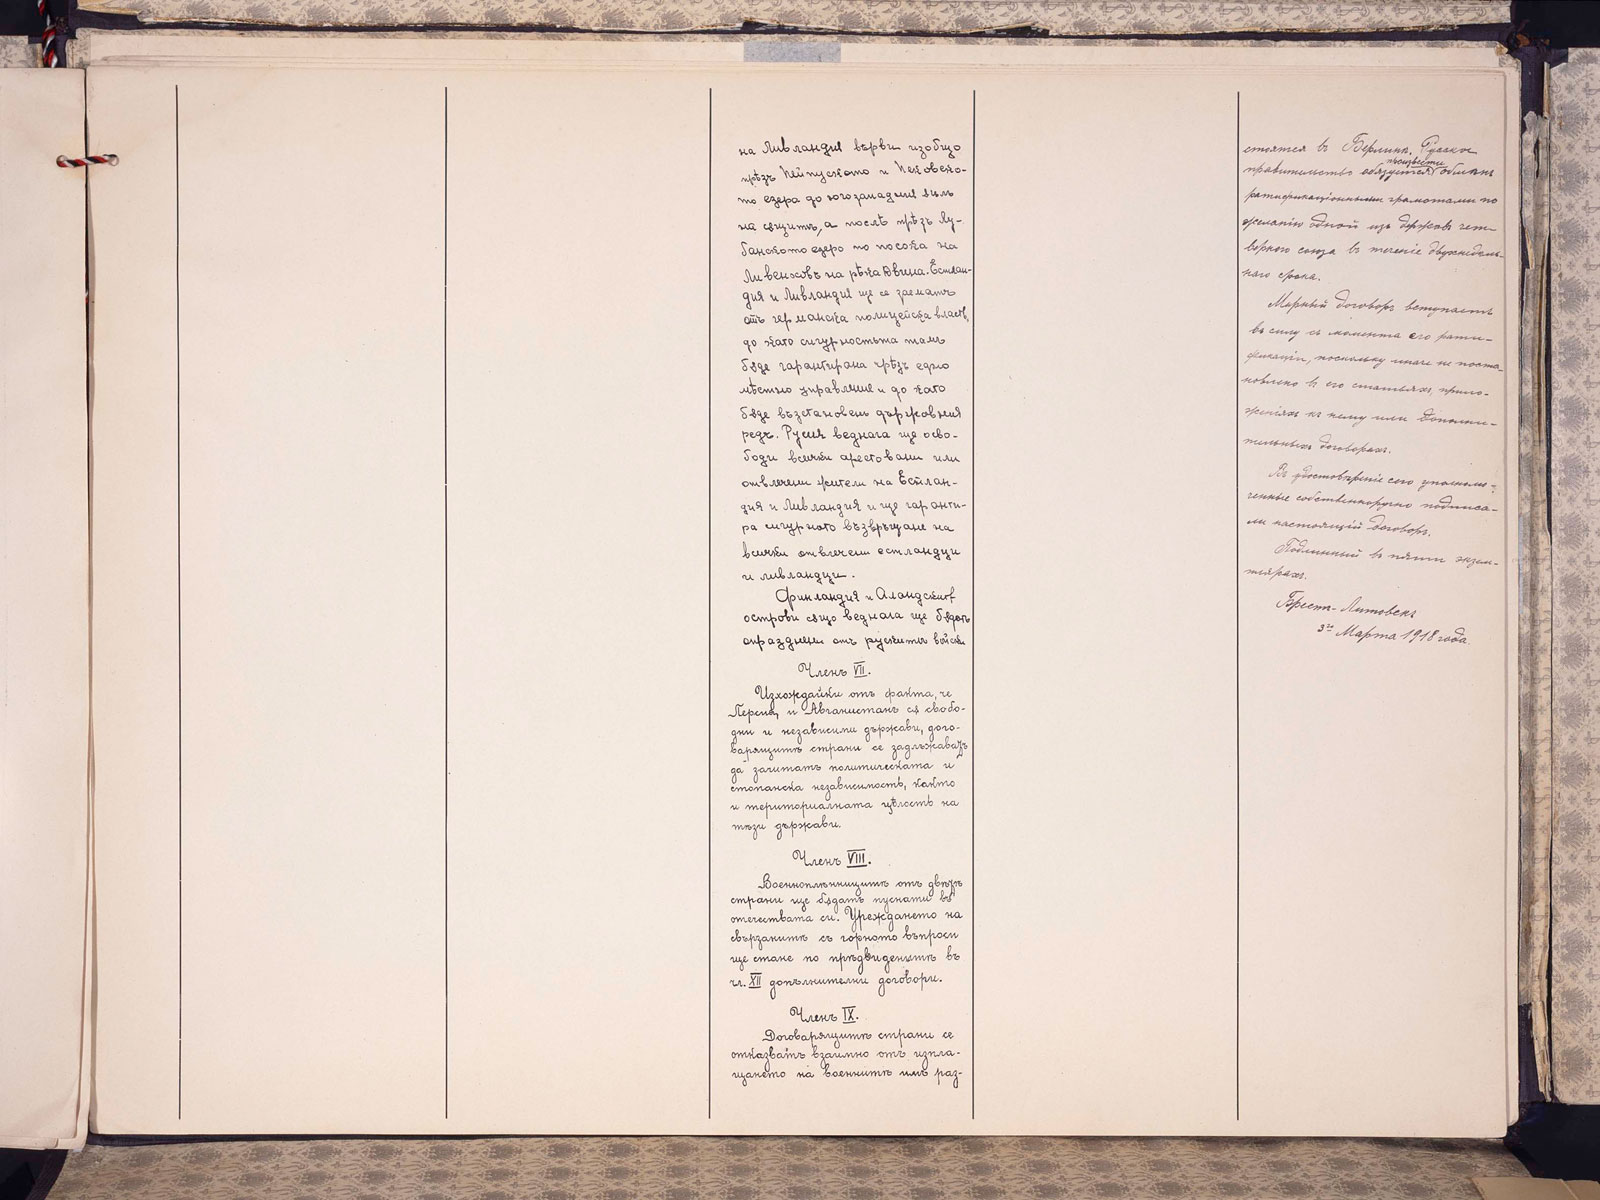 на Ливландия върви изобщо
прѣзъ Пейпуското и Псковско-
то езера до югозападния ѫгълъ
на сѫщитѣ, а послѣ прѣзъ Лу-
банското езеро по посока на
Ливенховъ на рѣка Двина. Естлан-
дия и Ливландия ще се заематъ
отъ германска полицейска власть,
до като сигурностьта тамъ
бѫде гарантирана чрѣзъ едно
мѣстно управление и до като
бѫде възстановенъ държавния
редъ. Русия веднага ще осво-
боди всички арестовани или
отвлечени жители на Естлан-
дия и Ливландия и ще гаранти-
ра сигурното възвръщане на
всички отвлечени естландци
и ливландци.
Финландия и Аландските
острови също веднага ще бѫдатъ
опразднени отъ рускитѣ войски
Членъ VII.
Изхождайки отъ факта, че
Персия и Авганистанъ сѫ свобо-
дни и независими държави, дого-
варящитѣ страни се задлъжаватъ
да зачитатъ политическата и
стопанска независимость, както
и териториалната цѣлость на
тѣзи държави.
Членъ VIII.
Военноплѣнницитѣ отъ двѣтѣ
страни ще бѫдатъ пуснати въ
отечествата си. Урежданeто на
свързанитѣ съ горното въпроси
ще стане по прѣдвиденитѣ въ
чл. XII допълнителни договори.
Членъ IX.
Договарящитѣ страни се
отказватъ взаимно отъ изпла-
щането на военнитѣ имъ раз-
стоятся въ Берлинѣ. Русское
правительство обязуется произвести обмѣнъ
ратификаціонными грамотами по
желанію одной изъ державъ чет-
верного союза въ теченіе двухнедѣль-
наго срока.
Мирный договоръ вступаетъ
въ силу съ момента его рати-
фикаціи, поскольку иначе не поста-
новлено в его статьяхъ, прило-
женіяхъ къ нему или дополни-
тельныхъ договорахъ.
Въ удостовѣреніе сего уполномо-
ченные собственноручно подписа-
ли настоящій договоръ.
Подлинный въ пяти экзем-
плярахъ.
Брестъ-Литовскъ
3го Марта 1918 года.